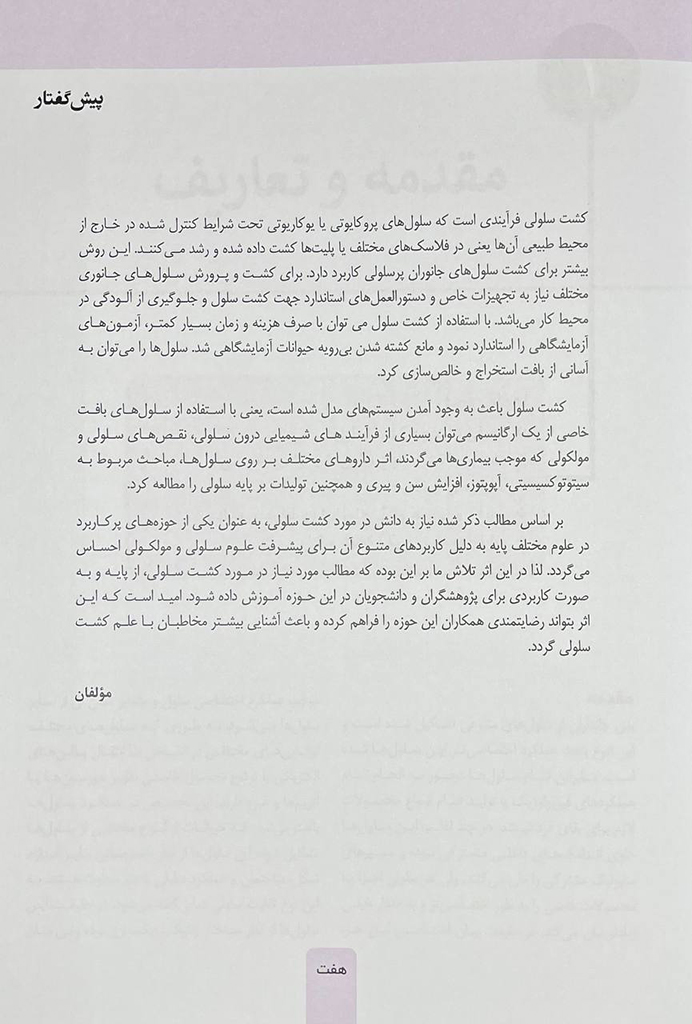 پیش‌گفتار
مقدمه و تعاریف
کشت سلولی فرآیندی است که سلول‌های پروکایوتی یا یوکاریوتی تحت شرایط کنترل شده در خارج از
محیط طبیعی آن‌ها یعنی در فلاسک‌های مختلف یا پلیت‌ها کشت داده شده و رشد می‌کنند. این روش
بیشتر برای کشت سلول‌های جانوران پرسلولی کاربرد دارد. برای کشت و پرورش سلول‌های جانوری
مختلف نیاز به تجهیزات خاص و دستورالعمل‌های استاندارد جهت کشت سلول و جلوگیری از آلودگی در
محیط کار می‌باشد. با استفاده از کشت سلول می توان با صرف هزینه و زمان بسیار کمتر، آزمون‌های
آزمایشگاهی را استاندارد نمود و مانع کشته شدن بی‌رویه حیوانات آزمایشگاهی شد. سلول‌ها را می‌توان به
آسانی از بافت استخراج و خالص‌سازی کرد.
کشت سلول باعث به وجود آمدن سیستم‌های مدل شده است، یعنی با استفاده از سلول‌های بافت
خاصی از یک ارگانیسم می‌توان بسیاری از فرآیند های شیمیایی درون سلولی، نقص‌های سلولی و
مولکولی که موجب بیماری‌ها می‌گردند، اثر داروهای مختلف بر روی سلول‌ها، مباحث مربوط به
سیتوتوکسیسیتی، آپوپتوز، افزایش سن و پیری و همچنین تولیدات بر پایه سلولی را مطالعه کرد.
بر اساس مطالب ذکر شده نیاز به دانش در مورد کشت سلولی، به عنوان یکی از حوزه‌های پرکاربرد
در علوم مختلف پایه به دلیل کاربردهای متنوع آن برای پیشرفت علوم سلولی و مولکولی احساس
می‌گردد. لذا در این اثر تلاش ما بر این بوده که مطالب مورد نیاز در مورد کشت سلولی، از پایه و به
صورت کاربردی برای پژوهشگران و دانشجویان در این حوزه آموزش داده شود. امید است که این
اثر بتواند رضایتمندی همکاران این حوزه را فراهم کرده و باعث آشنایی بیشتر مخاطبان با علم کشت
سلولی گردد.
مؤلفان
هفت